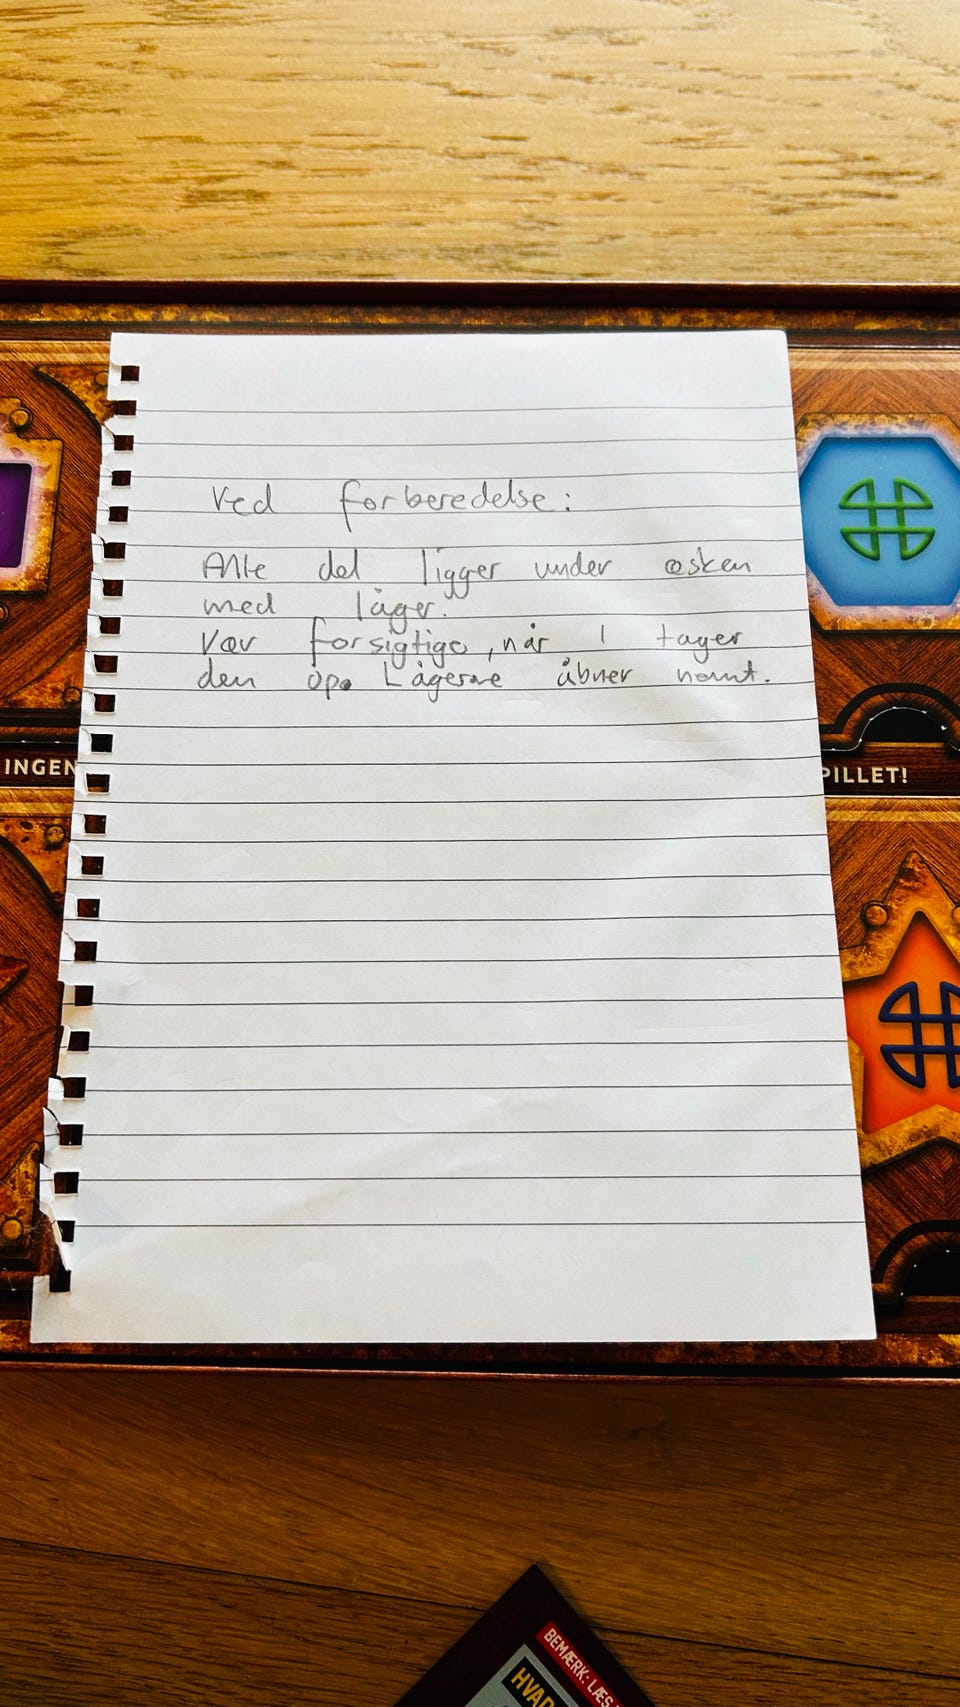 Ved forberedelse:
Alle del ligger under æsken
med låger.
Vær forsigtige, når I tager
den op. Lågerne åbner nemt.
INGEN
PILLET!
BEMÆRK: LÆS
HVAD